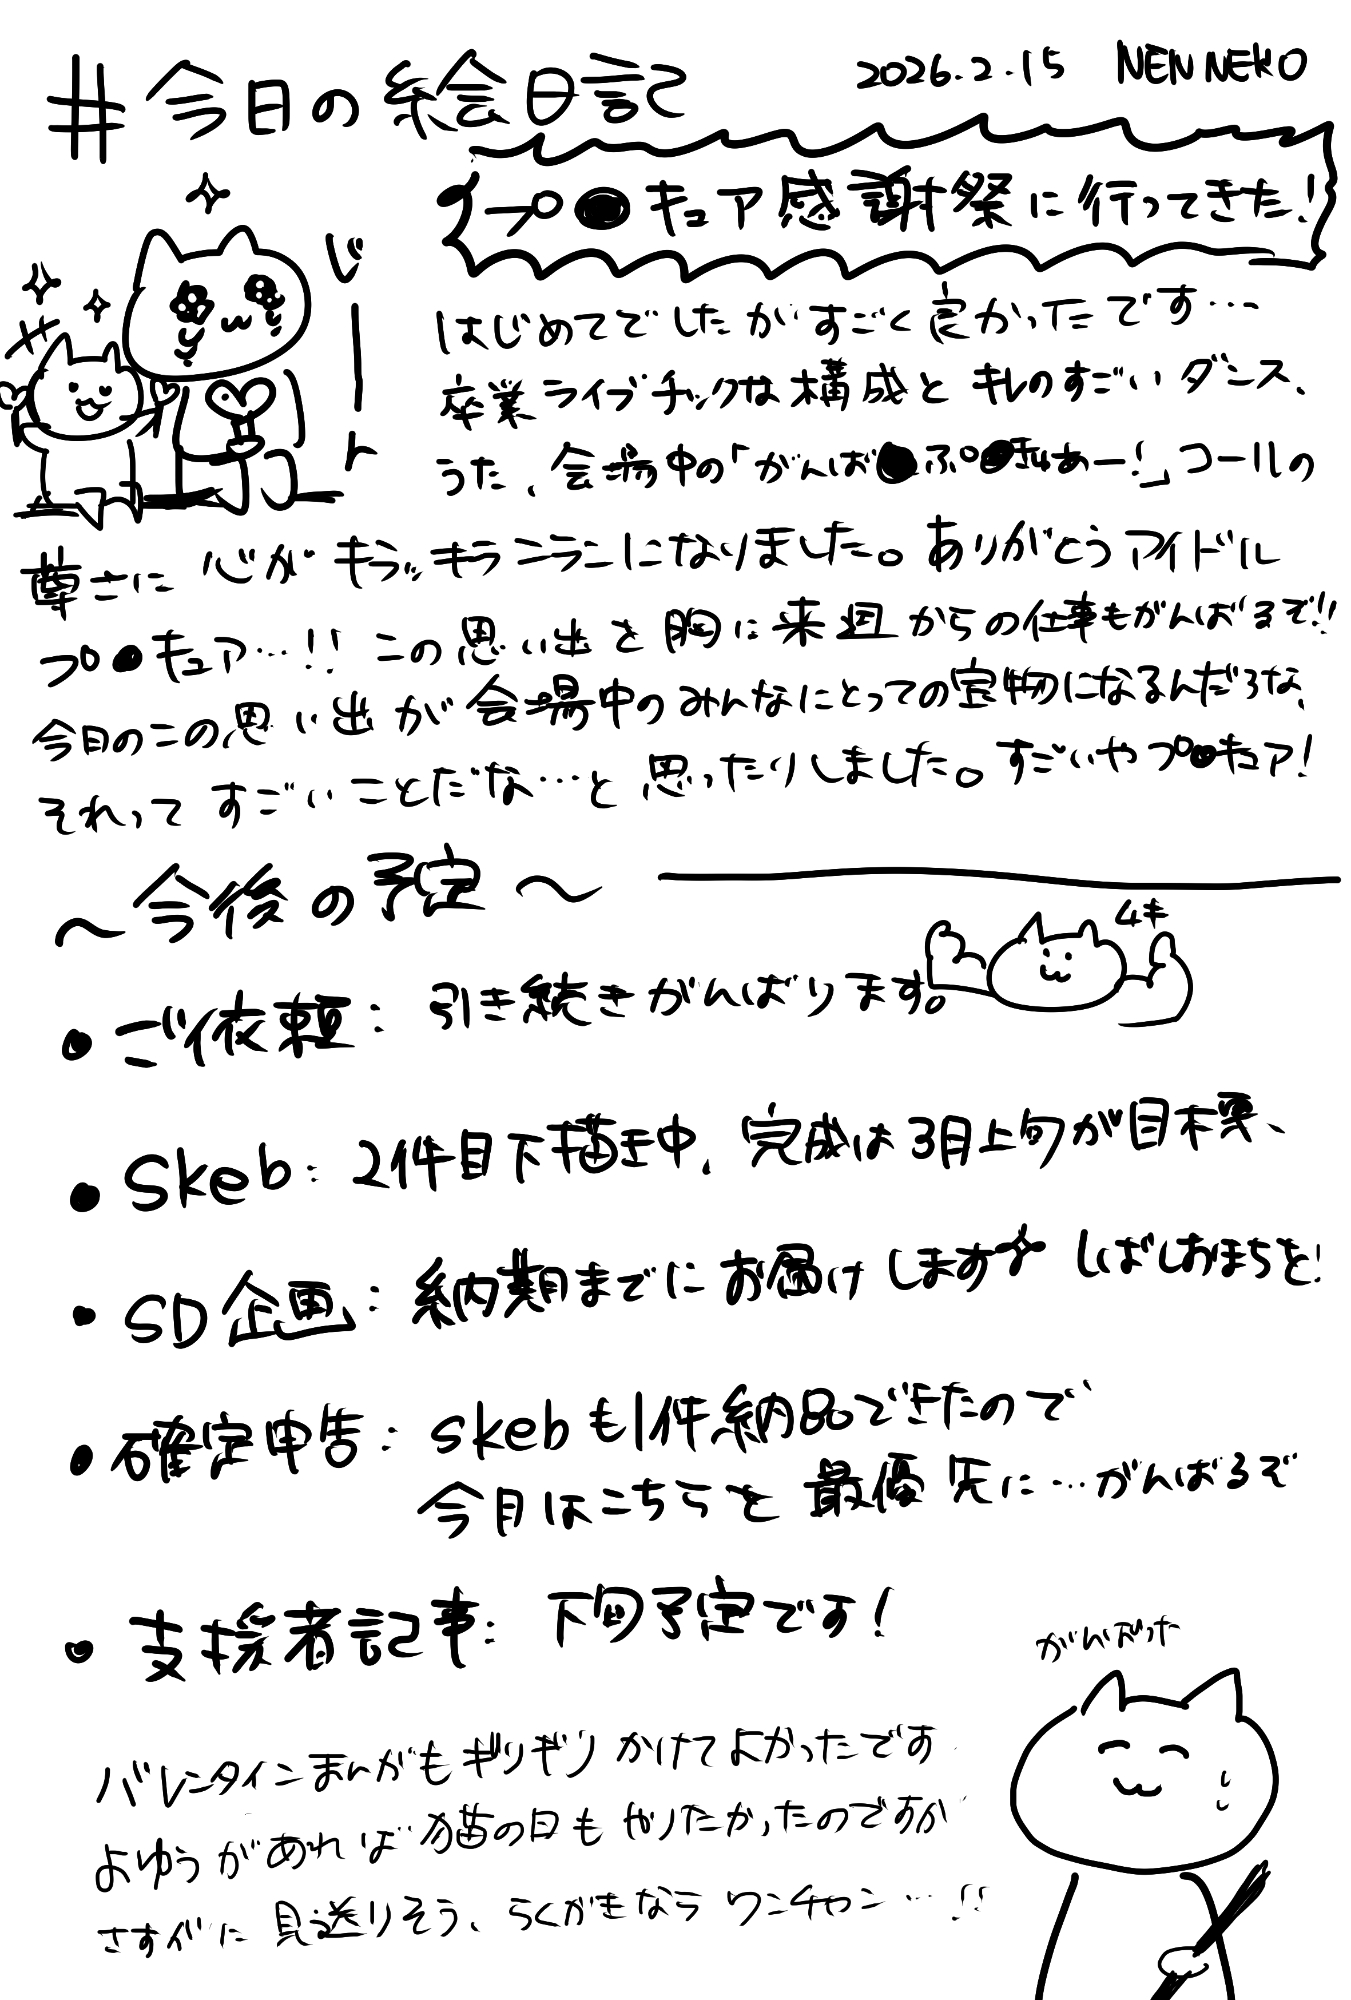 #今日の絵日記
2026.2.15 NENNEKO
プ●キュア感謝祭に行ってきた!
じーん
はじめてでしたがすごく良かったです…
卒業ライブチックな構成とキレのすごいダンス、
うた、会場中の「がんば●ぷ●きゅあー!」コールの
尊さに心がキラッキランランになりました。ありがとうアイドル
プ●キュア…!!この思い出を胸に来週からの仕事もがんばるぞ!!
今日のこの思い出が会場中のみんなにとっての宝物になるんだろな、
それってすごいことだな…と思ったりしました。すごいやプ●キュア!
〜今後の予定〜
●ご依頼:引き続きがんばります。
●Skeb:2件目下描き中、完成は3月上旬が目標、
・SD企画:納期までにお届けします しばしおまちを!
●確定申告:skebも1件納品できたので
今月はこちらを最優先に…がんばるぞ
●支援者記事:下旬予定です!
がんばった
バレンタインまんがもギリギリかけてよかったです
よゆうがあれば猫の日もやりたかったのですが
さすがに見送りそう、らくがきならワンチャン…!!